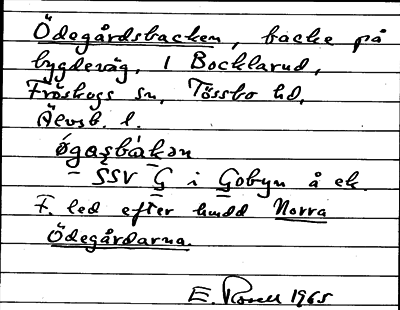 Ödegårdsbacken, backe på
bygdeväg, i Bocklarud,
Fröskogs sn, Tössbo hd,
Älvsb. l.
øgaṣbàkən
SSV G i Gobyn å ek.
F. led efter hmdd Norra
Ödegårdarna.
E. Rosell 1965